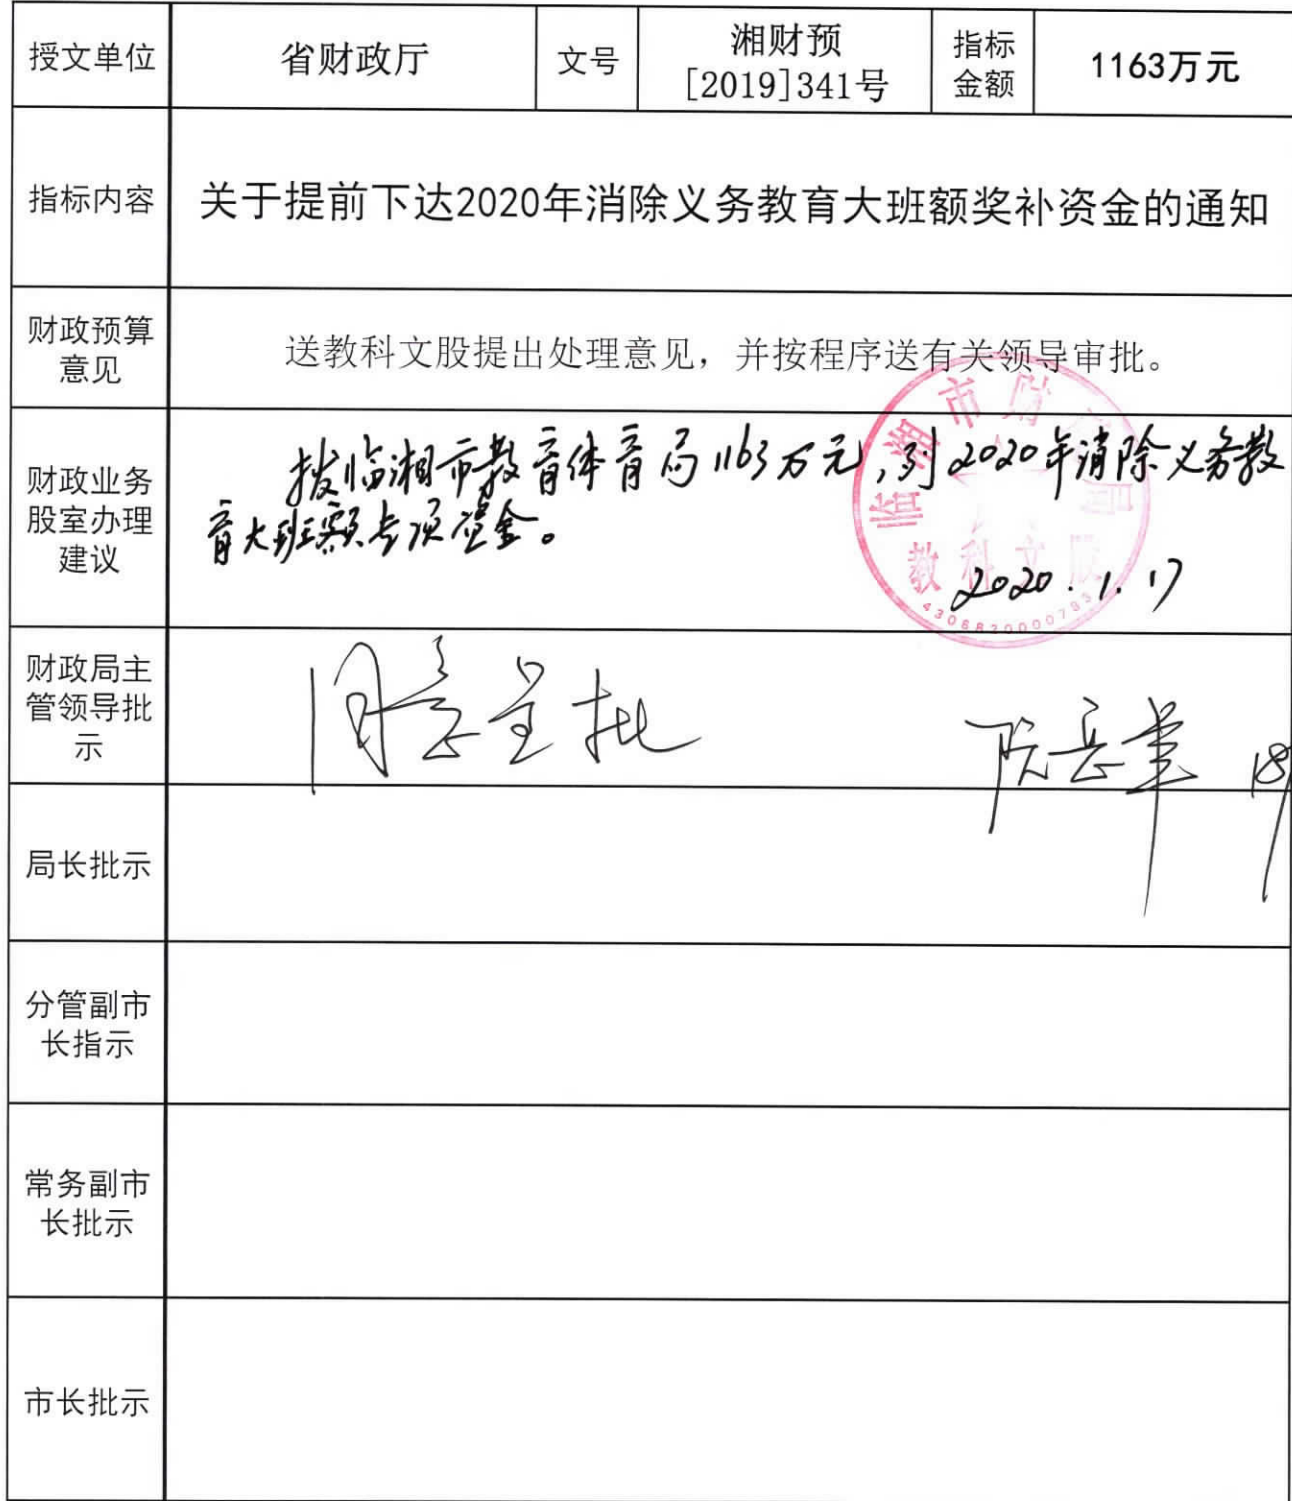 授文单位 省财政厅 文号 湘财预 [2019]341号 指标金额 1163万元
指标内容 关于提前下达2020年消除义务教育大班额奖补资金的通知
财政预算
意见
送教科文股提出处理意见，并按程序送有关领导审批。
财政业务
股室办理
建议
拨临湘市教育体育局1163万元，列2020年消除义务教
育大班额专项资金。
2020.1.17
临湘市财
教科文股
财政局主
管领导批
示
同意呈批
18/
局长批示
分管副市
长指示
常务副市
长批示
市长批示